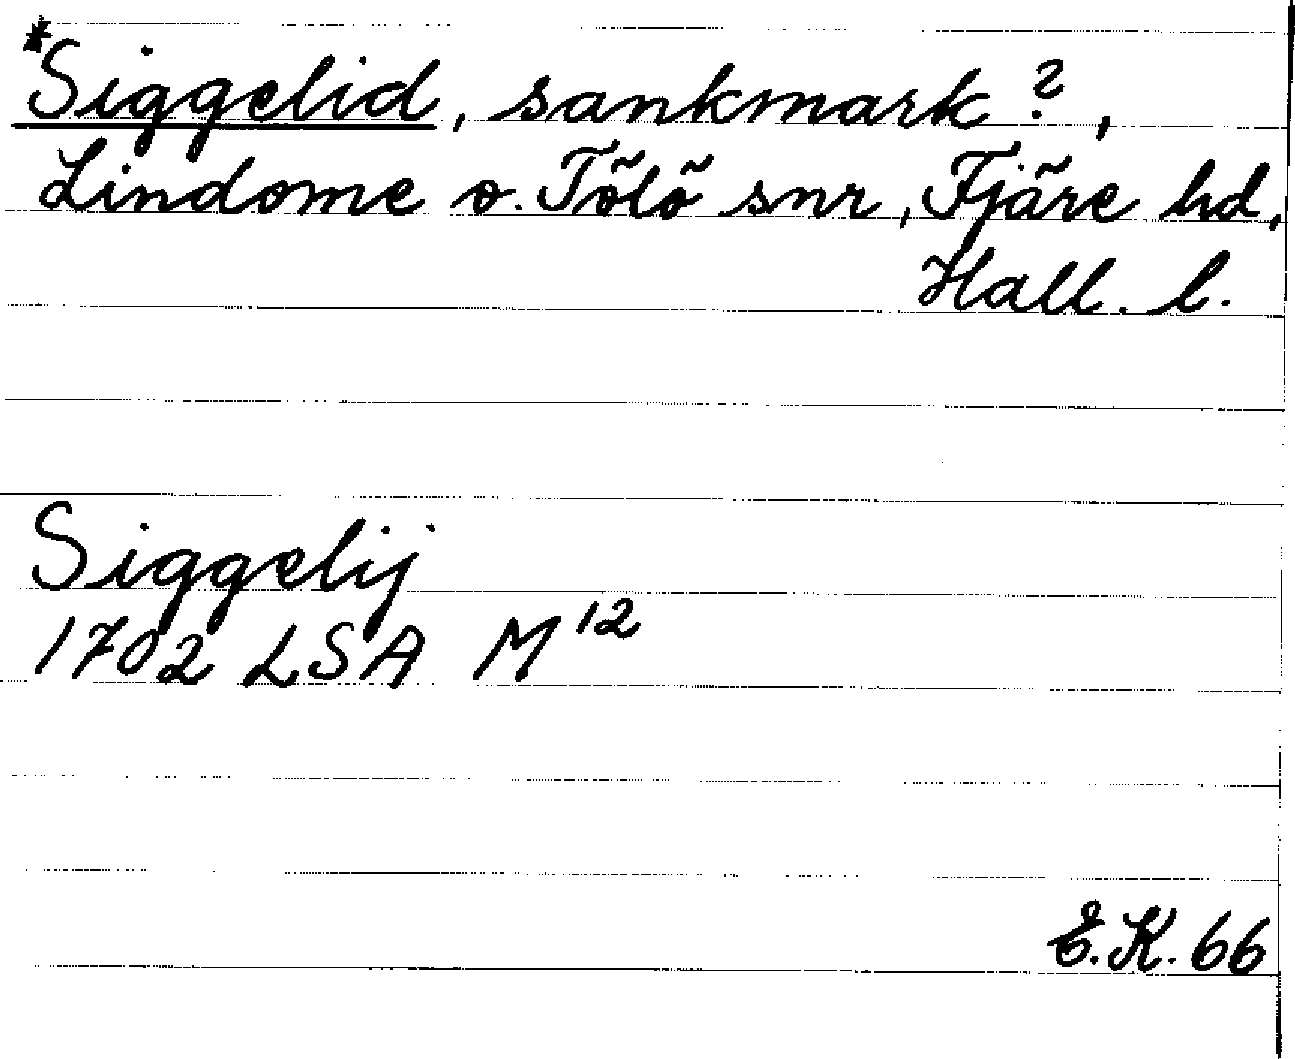 *Siggelid, sankmark?,
Lindome o. Tölö snr, Fjäre hd,
Hall. l.
Siggelij
1702 LSA M¹²
E.K. 66